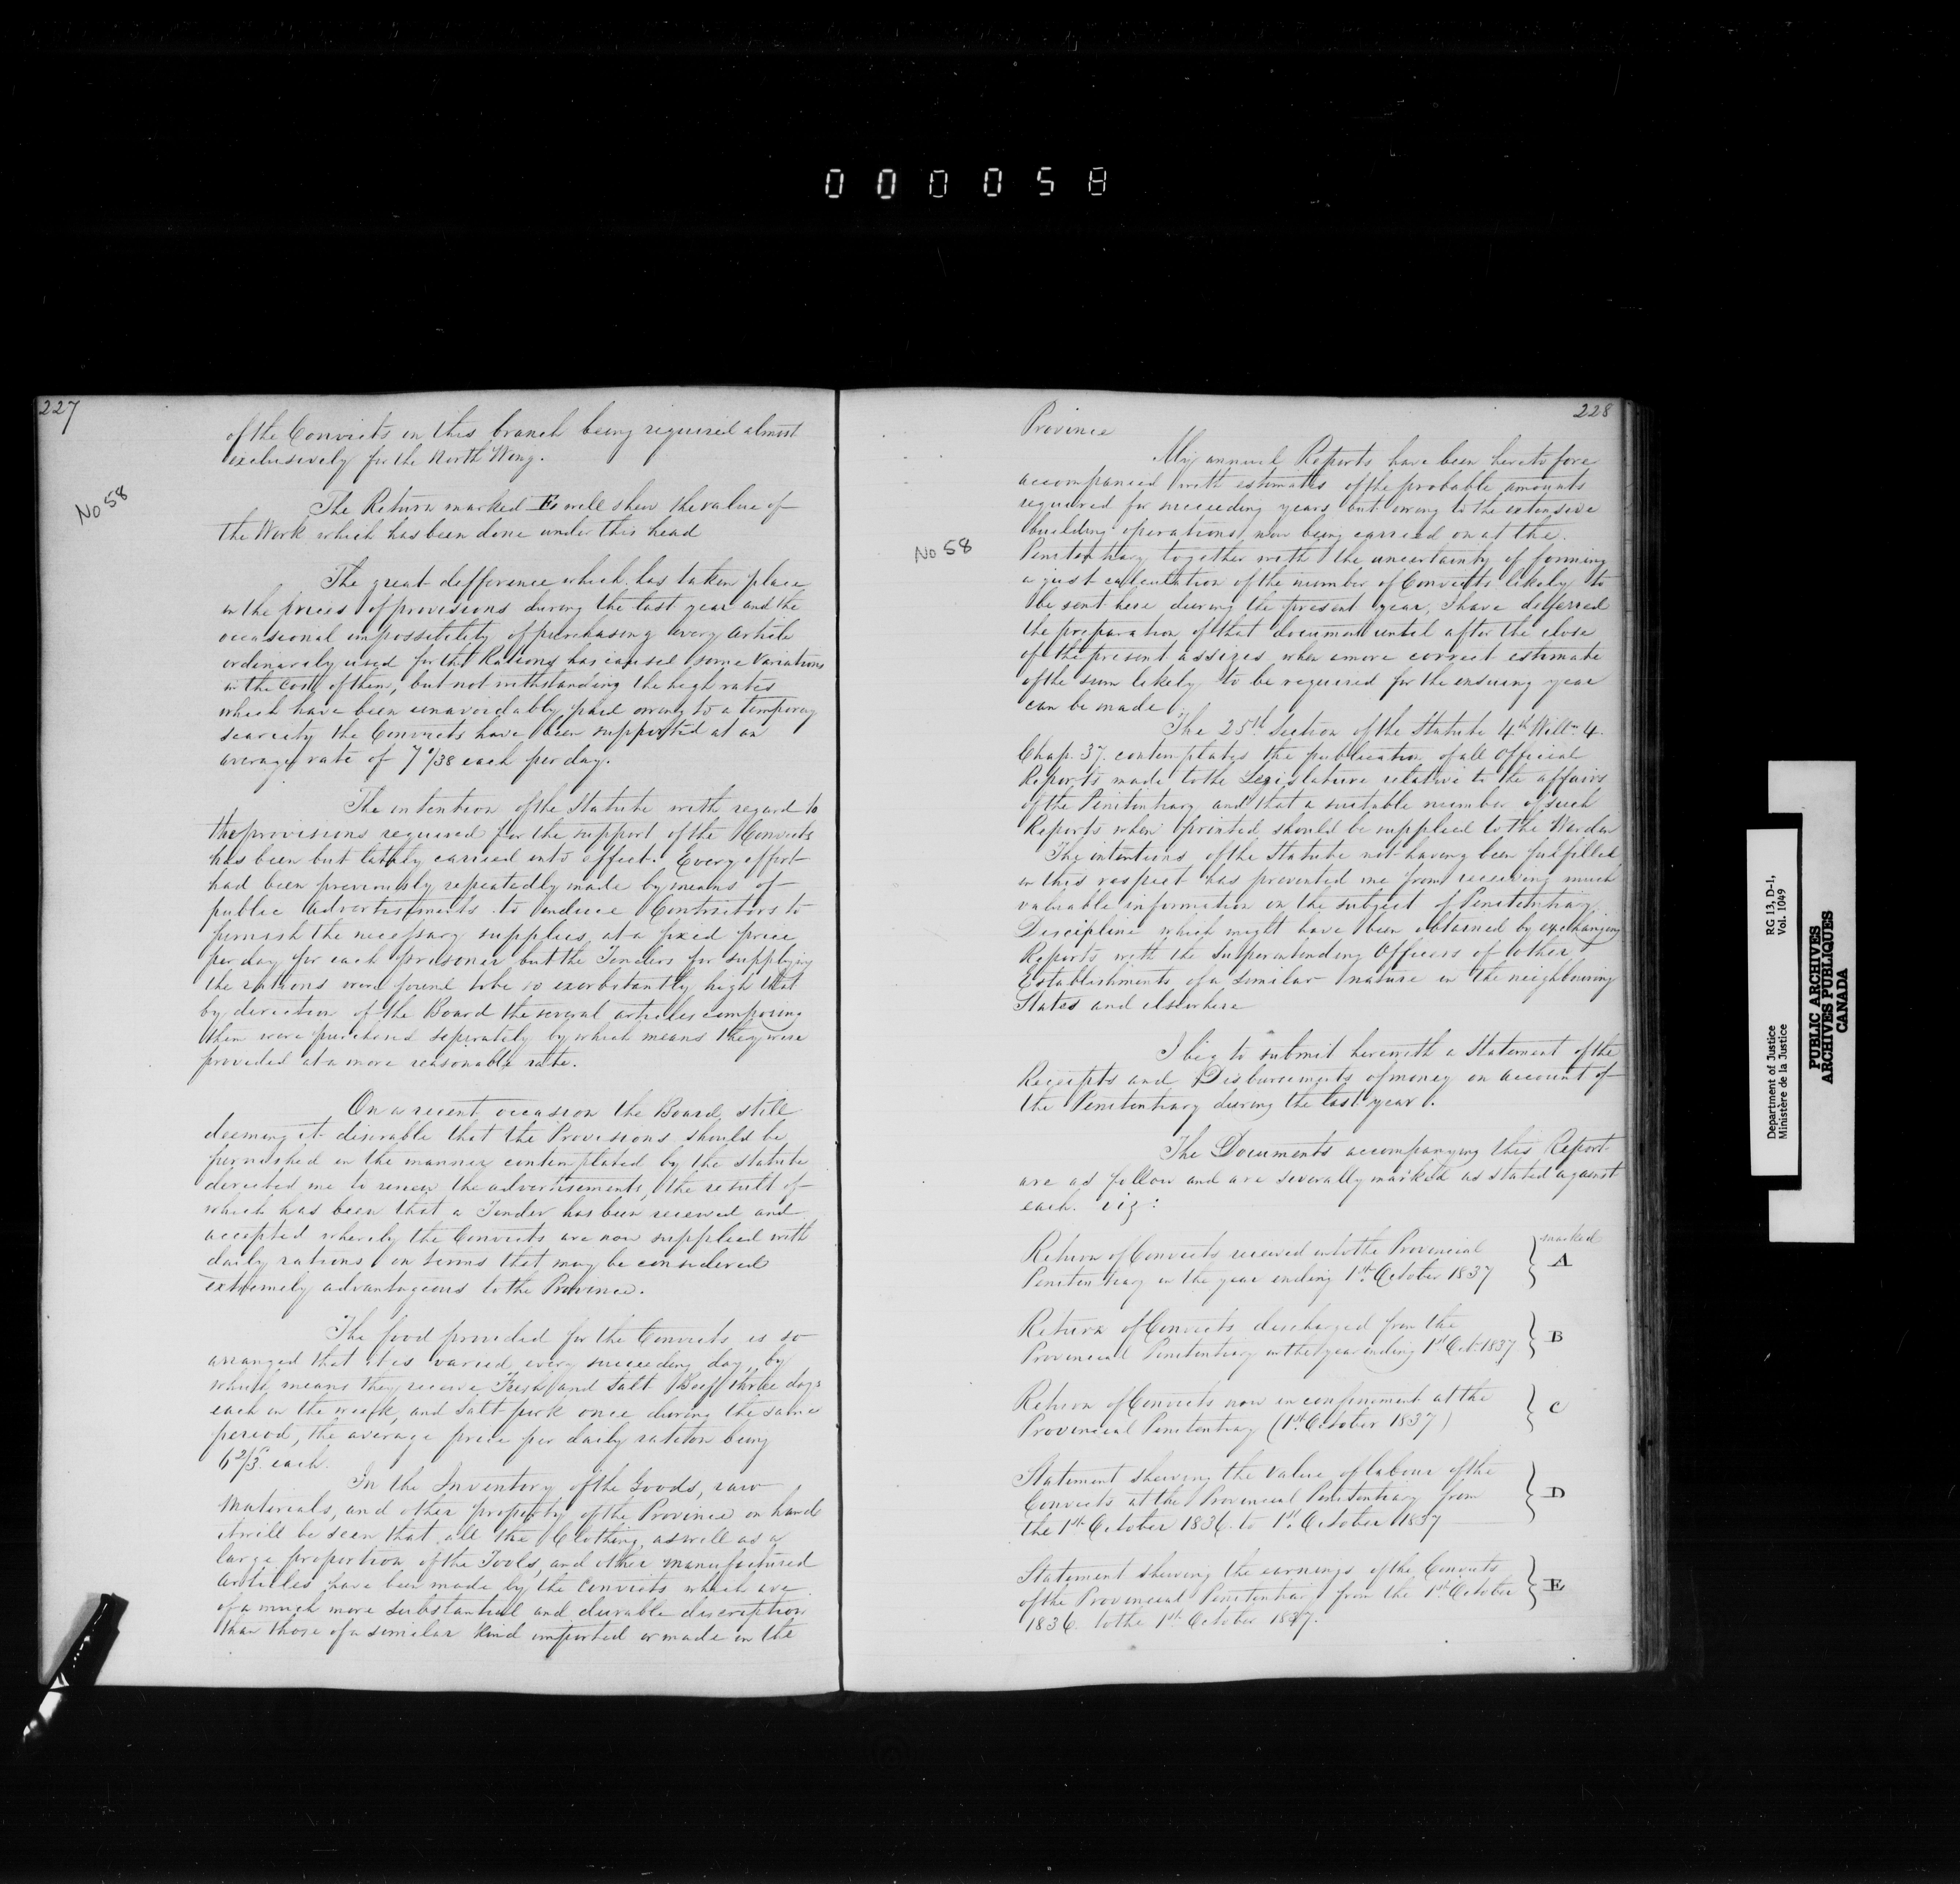 000058
227
No 58
of the Convicts in this branch being required almost
exclusively for the North Wing.
The Return marked E will shew the value of
the Work which has been done under this head
The great defference which has taken place
in the prices of provisions during the last year and the
occasional impossibility of purchasing every article
ordinarily used for the Rations has caused some variations
in the cost of them, but not withstanding the high rates
which have been unavoidably paid owing to a temporary
scarcity the Convicts have been supported at an
average rate of 7 /38 each per day.
The intention of the Statute with regard to
the provisions required for the support of the Convicts
has been but lately carried into effect. Every effort
had been previously repeatedly made by means of
public advertisements to induce Contractors to
furnish the necessary supplies at a fixed price
per day for each prisoner but the Tenders for supplying
the rations were found to be so exorbitantly high that
by direction of the Board the several articles composing
them were purchased seperately by which means they were
provided at a more reasonable rate.
On a recent occasion the Board still
deeming it disirable that the Provisions should be
furnished in the manner contemplated by the statute
directed me to renew the advertisements, the result of
which has been that a Tender has been received and
accepted whereby the Convicts are now supplied with
daily rations on terms that may be considered
extremely advantageous to the Province.
The food provided for the Convicts is so
arranged that it is varied every succeeding day, by
which means they receive Fresh and Salt Beef three days
each in the week, and Salt pork once during the same
period, the average price per daily ration being
6 2/3 each.
In the Inventory of the Goods, raw
Materials, and other property of the Province on hand
it will be seen that all the Clothing, as well as a
large proportion of the Tools, and other manufactured
articles have been made by the Convicts which are
of a much more substantial and durable discription
than those of a similar kind imported or made in the
228
No 58
Province
My annual Reports have been heretofore
accompanied with estimates of the probable amounts
required for succeeding years, but owing to the extensive
building operations now being carried on at the
Penitentiary together with the uncertainty of forming
a just calculation of the number of Convicts likely to
be sent here during the present year, I have deferred
the preparation of that document until after the close
of the present assizes when a more correct estimate
of the sum likely to be required for the ensuing year
can be made.
The 25th Section of the Statute 4th Willm 4.
Chap. 37. contemplates the publication of all Official
Reports made to the Legislature relative to the affairs
of the Penitentiary and that a suitable number of such
Reports when printed should be supplied to the Warden
The intentions of the Statute not having been fulfilled
in this respect has prevented me from receiving much
valuable information on the subject of Penitentiary
Discipline which might have been obtained by exchanging
Reports with the Superintending Officers of other
Establishments of a similar nature in the neighbouring
States and elsewhere
I beg to submit herewith a Statement of the
Receipts and Disbursements of money on account of
the Penitentiary during the last year.
The Documents accompanying this Report
are as follow and are severally marked as stated against
each. viz:
Return of Convicts received into the Provincial
Penitentiary in the year ending 1st October 1837
marked
A
Return of Convicts discharged from the
Provincial Penitentiary in the year ending 1st Oct. 1837
B
Return of Convicts now in confinement at the
Provincial Penitentiary (1st October 1837)
C
Statement shewing the value of labour of the
Convicts at the Provincial Penitentiary from
the 1st October 1836. to 1st October 1837
D
Statement shewing the earnings of the Convicts
of the Provincial Penitentiary from the 1st October
1836. to the 1st October 1837.
E
Department of Justice
Ministère de la Justice
RG 13, D-1,
Vol. 1049
PUBLIC ARCHIVES
ARCHIVES PUBLIQUES
CANADA